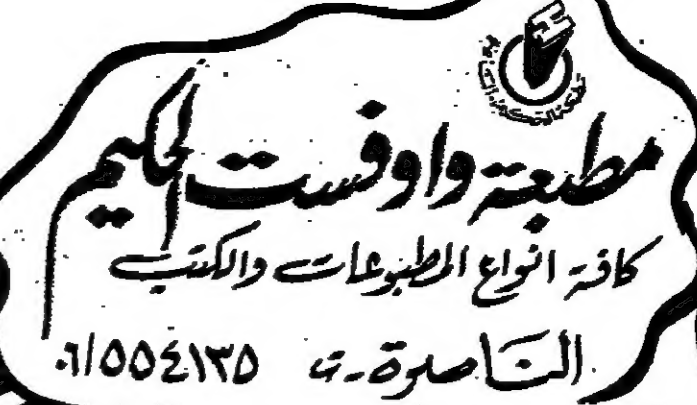 مطبعة واوفست الحكيم
كافة انواع المطبوعات والكتب
الناصرة - ت ٠٦/٥٥٤١٣٥